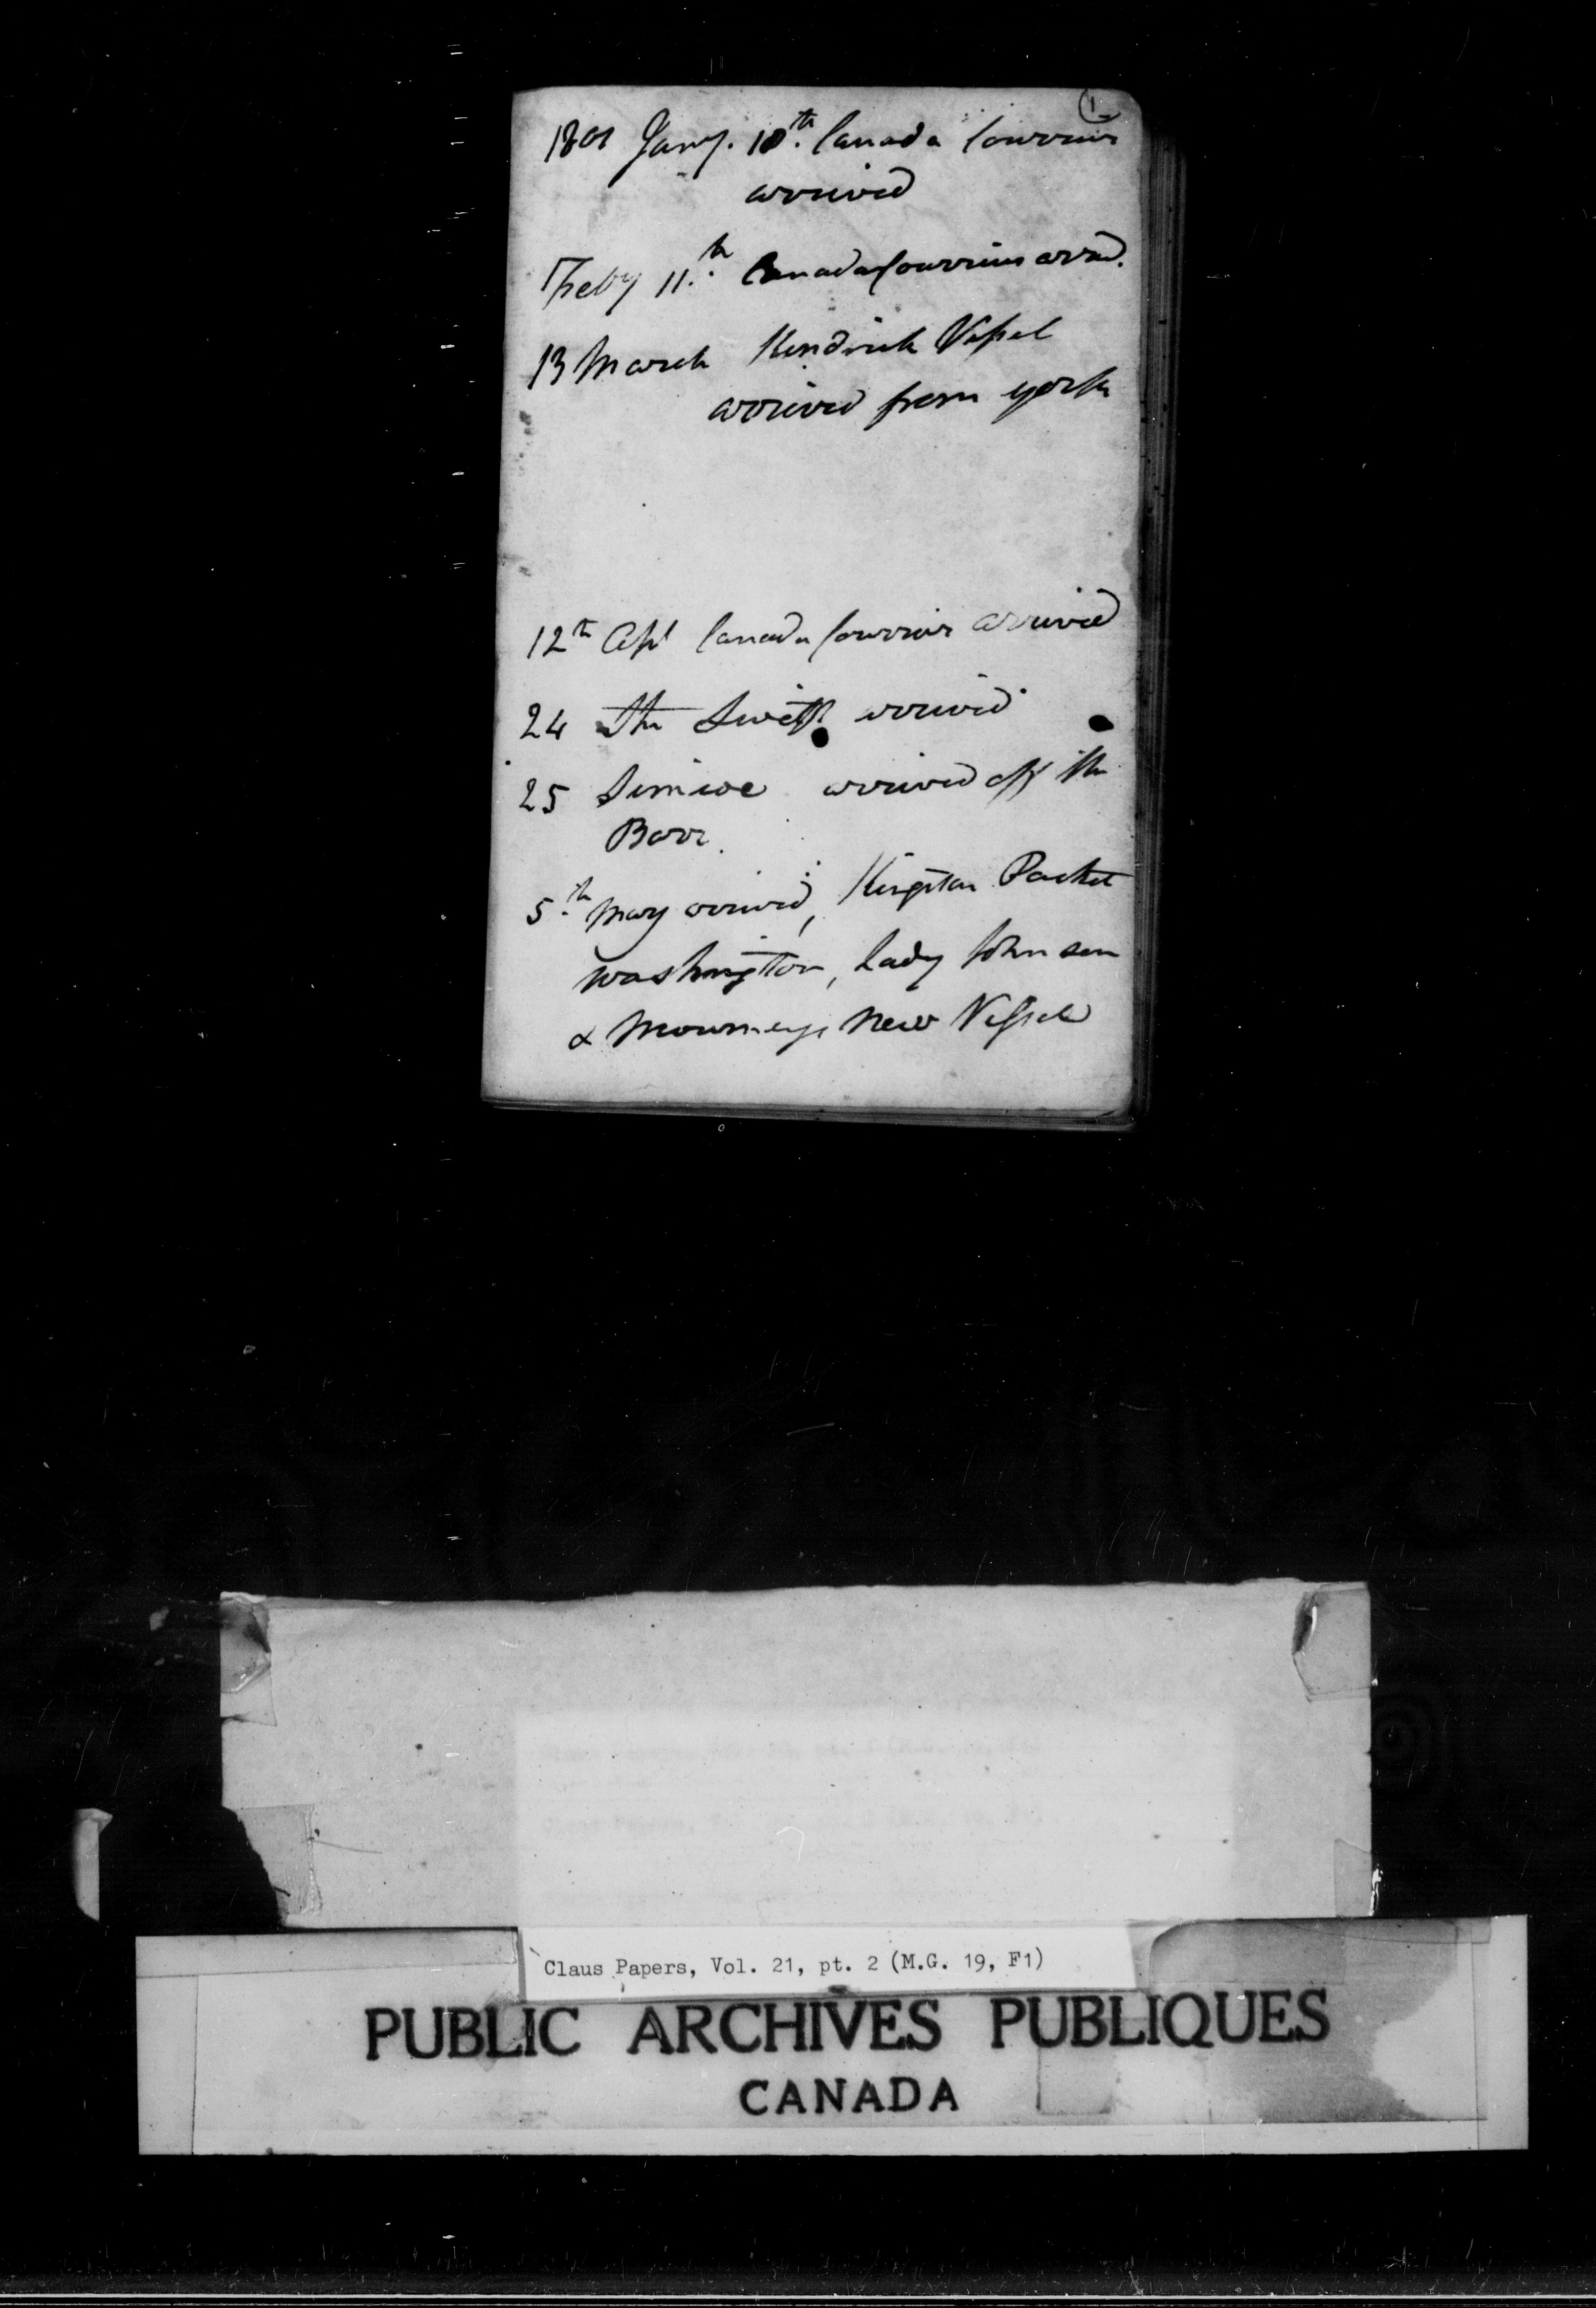 1
1801 Jany. 10th. Canada Courrier
arrived
Feby 11.th Canada Courrier arrd.
13 March Kendrick Vessel
arrived from york
12th Apl Canada Courrier arrived
24 The Swift arrived
25 Simcoe arrived off the
Barr.
5.th May arrived, Kingston Packet
Washington, Lady Johnson
& Mourneys New Vessel
Claus Papers, Vol. 21, pt. 2 (M.G. 19, F1)
PUBLIC ARCHIVES PUBLIQUES
CANADA